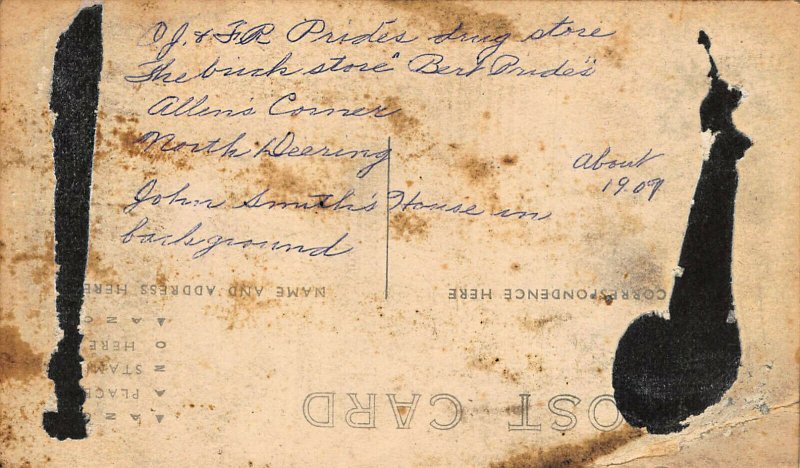 O J. & F R Pride's drug store
"The brick store" Bert Pride's
Allens Corner
North Deering
About
1909
John Smith's House in
background
NAME AND ADDRESS HERE
CORRESPONDENCE HERE
PLACE
HERE
OST CARD